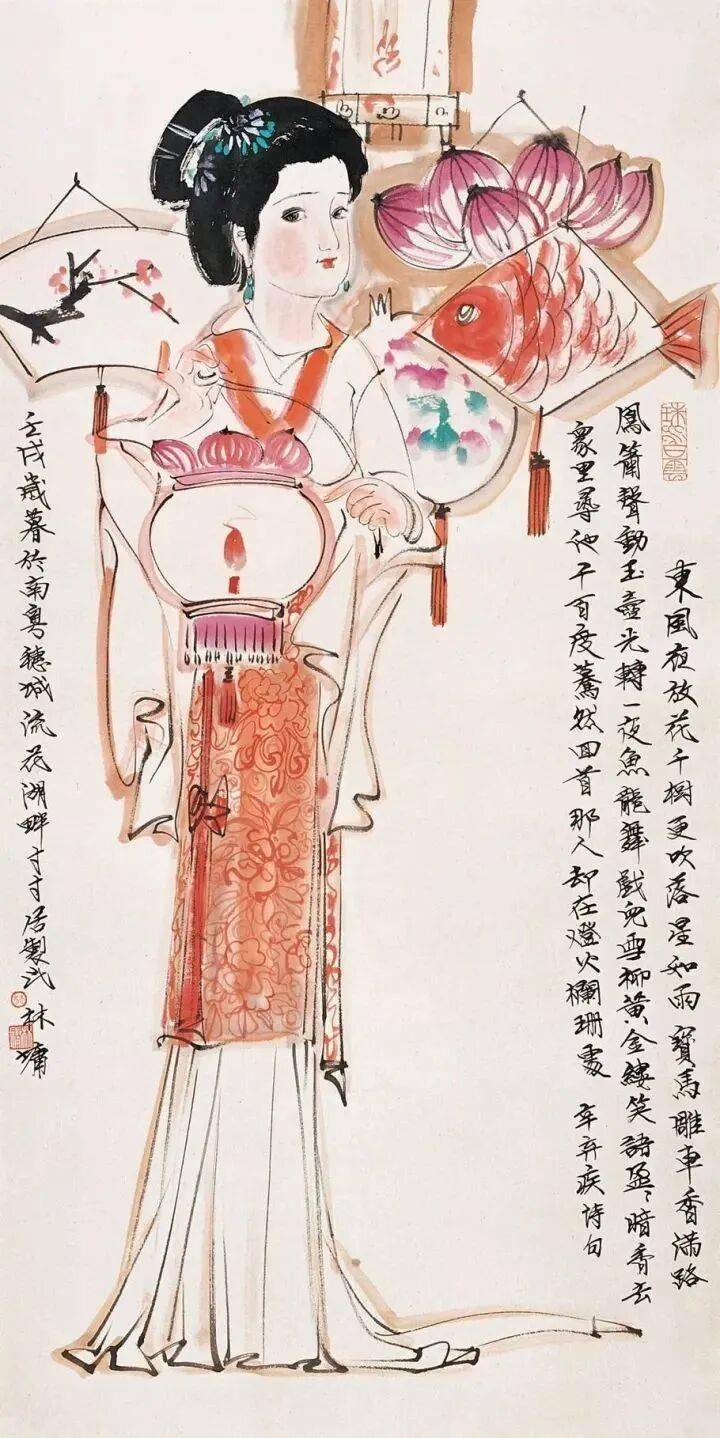 東風夜放花千樹更吹落星如雨寶馬雕車香滿路
鳳簫聲動玉壺光轉一夜魚龍舞戲兒雪柳黃金縷笑語盈〻暗香去
衆里尋他千百度驀然回首那人却在燈火欄珊處 辛弃疾诗句
壬戌歲暮於南粤穗城流花湖畔寸寸居製 林墉